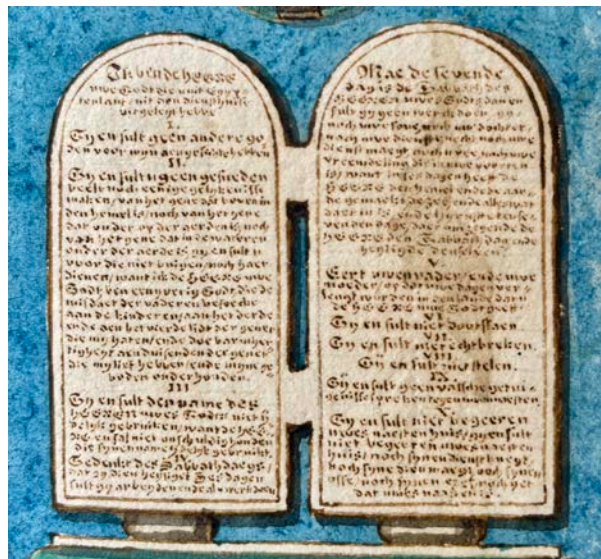 Ik ben de HEERE
uwe Godt die u uit Egyp-
tenlant uit den diensthuise
uitgeleyt hebbe
I.
Gy en sult geen andere go-
den voor mijn aengesichte hebben
II.
Gy en sult u geen gesneden
beelt noch eenige gelykenisse
maken, van het gene dat boven in
den hemel is, noch van het gene
dat onder op der aerden is, noch
van het gene dat in de wateren
onder der aerde is, gy en sult u
voor die niet buigen, noch haer
dienen, want ik de HEERE uwe
Godt ben een yverig Godt, die de
misdaet der vaderen besoeke
aen de kinderen, aen het derde
ende aen het vierde lidt der gener
die my haten, ende doe barmher-
tigheyt aen duisenden der gener
die my lief hebben, ende mijne ge-
boden onderhouden.
III
Gy en sult den name des
HEEREN uwes Godts niet y-
delyk gebruiken, want de HEE-
RE en sal niet onschuldig houden
die synen name ydelyk gebruikt.
Gedenkt des Sabbathdaegs,
dat gy dien heyliget. Ses dagen
sult gy arbeyden ende al u werk doen
Mae de sevende
dag is de Sabbath des
HEEREN uwes Godts dan en
sult gy geen werck doen, gy
noch uwe sone, noch uw dochter,
noch uwe dienstknecht noch uwe
dienstmaegt, noch u vee, noch uwe
vreemdeling die in uwe poorten
is, want in ses dagen heeft de
HEERE den hemel ende de aer-
de gemaekt, de zee ende alles wat
daer in is, ende hy ruste den seve-
den dage, daer om zegende de
HEERE den Sabbath dag ende
heyligde denselven.
V
Eert uwen vader, ende uwe
moeder, op dat uwe dagen ver-
lengt worden in den lande dat u
de HEERE uwe Godt geeft
VI
Gy en sult niet dootslaen.
VII
Gy en sult niet echtbreken.
VIII
Gy en sult niet stelen.
IX
Gy en sult geen valsche getui-
genisse spreken tegen uwen naesten
X
Gy en sult niet begeeren
uwes naesten huis, gy en sult
niet begeeren uwes naesten
huis, noch synen dienstknegt,
noch syne dienstmaegt, noch synen
osse, noch synen ezel, noch yet
dat uwes naasten is.